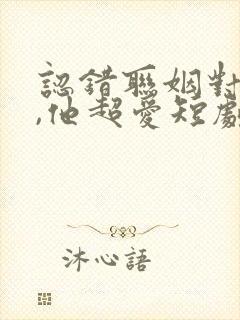 認錯聯姻對
,他超愛短劇
沐心語